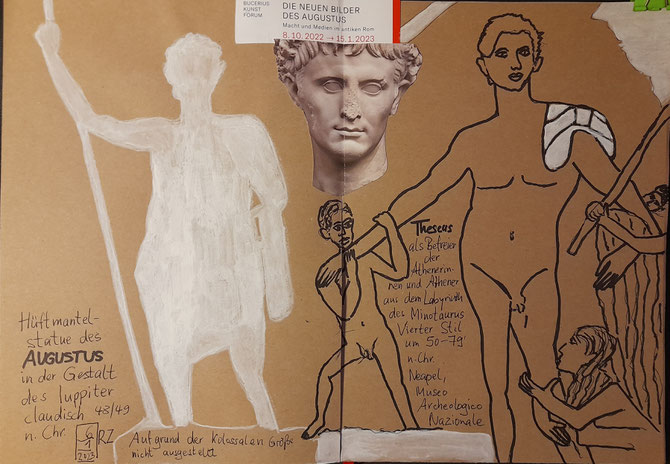 BUCERIUS
KUNST
FORUM
DIE NEUEN BILDER
DES AUGUSTUS
Macht und Medien im antiken Rom
8.10.2022 → 15.1.2023
Hüftmantel-
statue des
AUGUSTUS
in der Gestalt
des Iuppiter
claudisch 48/49
n. Chr.
RZ
2023
Aufgrund der kolossalen Größe
nicht ausgestellt
Theseus
als Befreier
der
Athenerin-
nen und Athener
aus dem Labyrinth
des Minotaurus
Vierter Stil
um 50-79
n. Chr.
Neapel,
Museo
Archeologico
Nazionale